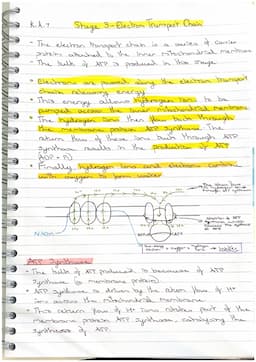 K.A.7 Stage 3 - Electron Transport Chain
- The electron transport chain is a series of carrier
proteins attached to the inner mitochondrial membrane
- The bulk of ATP is produced in this stage
- Electrons are passed along the electron transport
chain releasing energy
- This energy allows hydrogen ions to be
across the mitochondrial membrane
- The hydrogen ions then flow back through
the membrane protein ATP synthase. The
return flow of these ions back through ATP
synthase results in the production of ATP
(ADP + Pi)
- Finally hydrogen ions and electrons combine
with oxygen to form water
NADH
ATP Synthase
- The bulk of ATP produced is because of ATP
synthase (a membrane protein)
- ATP synthase is driven by the return flow of H+
ions across the mitochondrial membrane
- This return flow of H+ ions rotates part of the
membrane protein ATP synthase, catalysing the
synthesis of ATP.